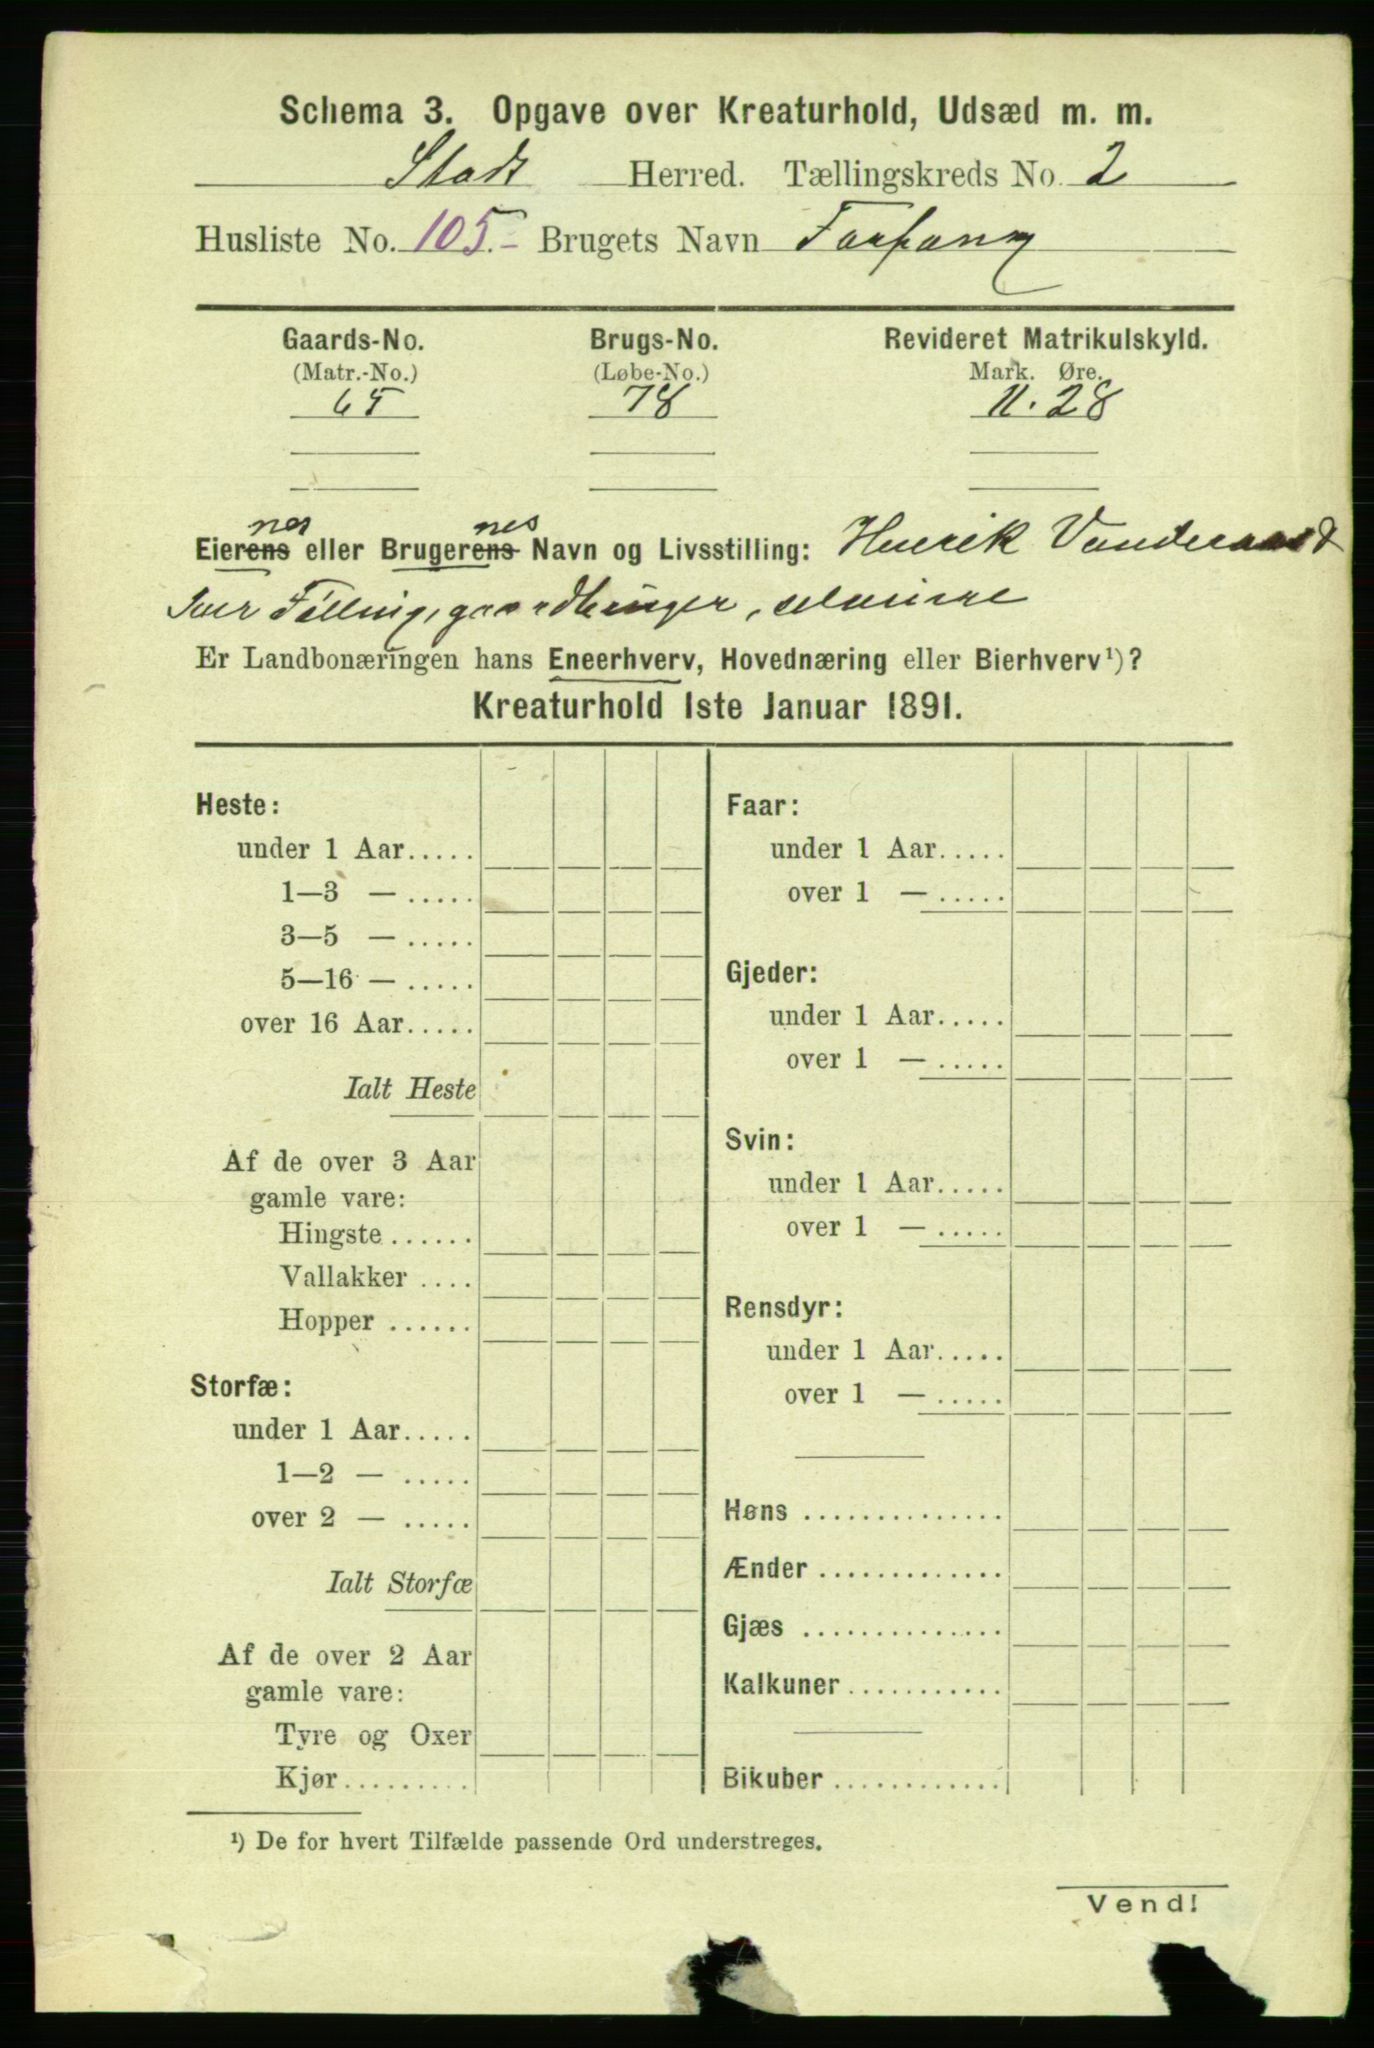 Schema 3. Opgave over Kreaturhold, Udsæd m. m.
Stadt Herred. Tællingskreds No. 2
Husliste No. 105.- Brugets Navn
Gaards-No. Brugs-No. Revideret Matrikulskyld.
(Matr.-No.) (Løbe-No.) Mark. Øre.
65 78 11.28
nes nes
Eierens eller Brugerens Navn og Livsstilling: Henrik
Iver Følling, gaardbruger, selveiere
Er Landbonæringen hans Eneerhverv, Hovednæring eller Bierhverv¹)?
Kreaturhold 1ste Januar 1891.
Heste:
under 1 Aar.....
1—3 — .....
3—5 — .....
5—16 — .....
over 16 Aar.....
Ialt Heste
Af de over 3 Aar
gamle vare:
Hingste ......
Vallakker ....
Hopper ......
Storfæ:
under 1 Aar.....
1—2 — .....
over 2 — .....
Ialt Storfæ
Af de over 2 Aar
gamle vare:
Tyre og Oxer
Kjør.........
Faar:
under 1 Aar.....
over 1 — .....
Gjeder:
under 1 Aar.....
over 1 — .....
Svin:
under 1 Aar.....
over 1 — .....
Rensdyr:
under 1 Aar.....
over 1 — .....
Høns ..............
Ænder .............
Gjæs ..............
Kalkuner...........
Bikuber ............
¹) De for hvert Tilfælde passende Ord understreges.
Vend!